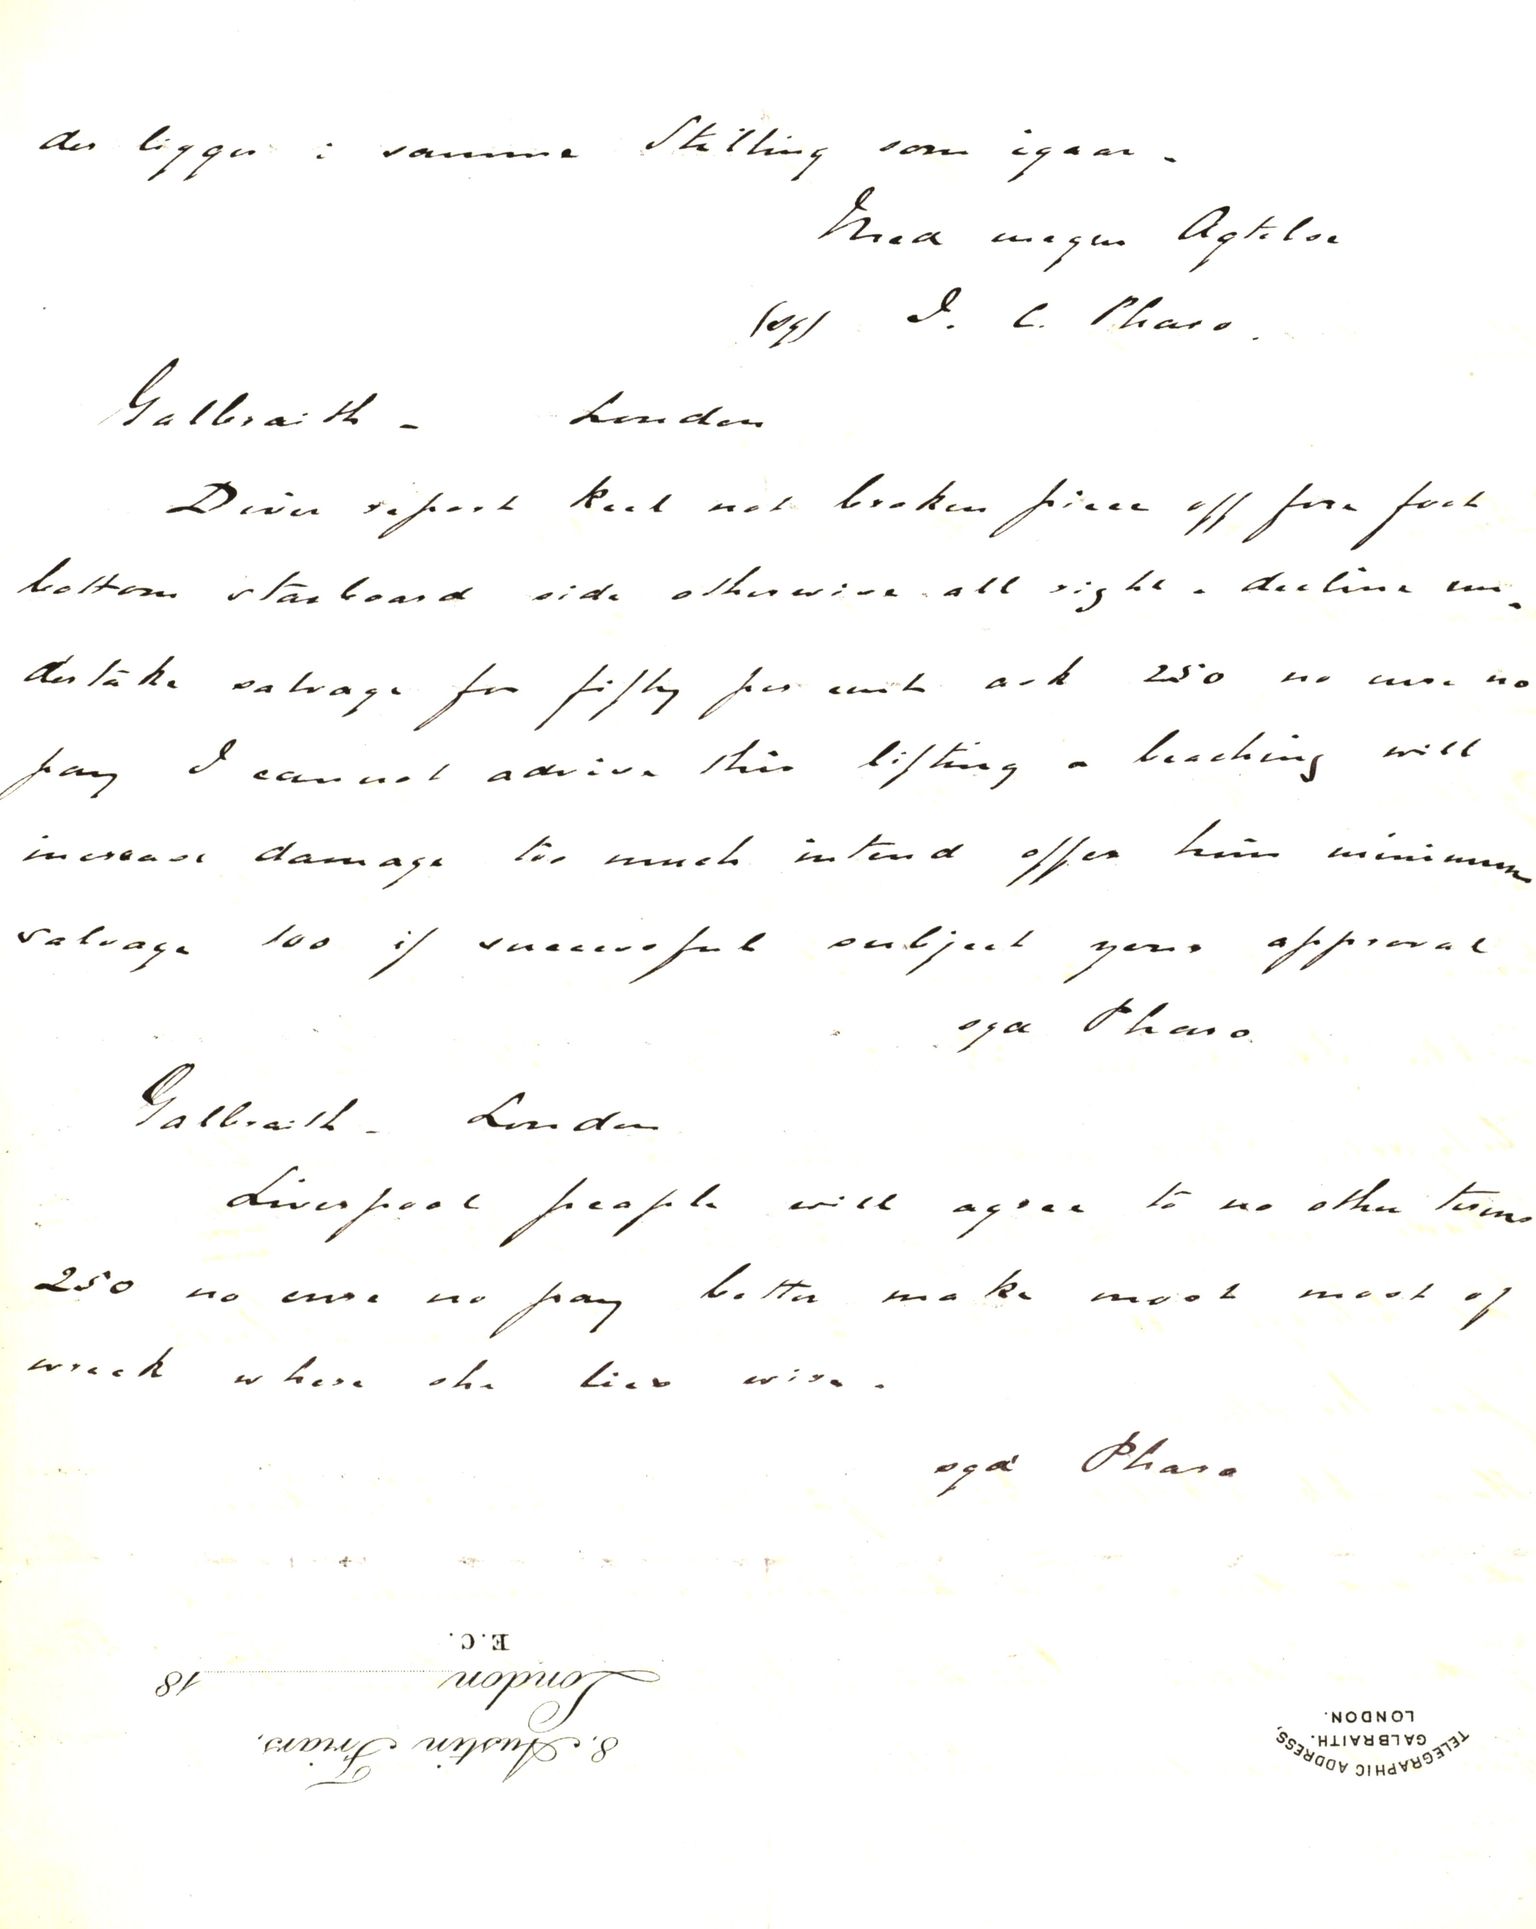 der ligger i samme Stilling som igaar.
Med megen Agtelse
(sg) J. C. Pharo.
Galbraith - London
Diver report keel not broken piece off fore foot
bottom starboard side otherwise all right. decline un-
dertake salvage for fifty per cent ask 250 no cure no
pay I cannot advise this lifting & beaching will
increase damage too much intend offer him minimum
salvage 100 if successful subject your approval
sgd Pharo
Galbraith - London
Liverpool people will agree to no other terms
250 no cure no pay better make most most of
wreck where she lies wire.
sgd Pharo
TELEGRAPHIC ADDRESS,
GALBRAITH.
LONDON.
8. Austin Friars,
London 18
E.C.